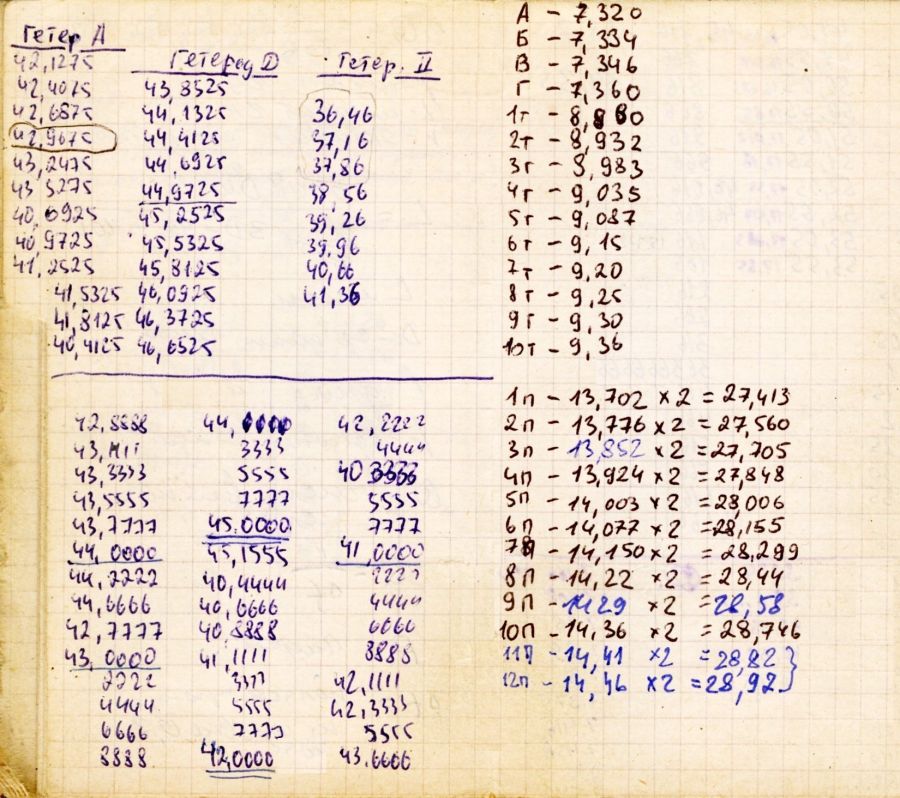 Гетер А
42,1275
42,4075
42,6875
42,9675
43,2475
43 5275
40,6925
40,9725
41,2525
41,5325
41,8125
40,4125
Гетерод D
43,8525
44,1325
44,4125
44,6925
44,9725
45,2525
45,5325
45,8125
46,0925
46,3725
46,6525
Гетер. II
36,46
37,16
37,86
38,56
39,26
39,96
40,66
41,36
42,8888
43,1111
43,3333
43,5555
43,7777
44,0000
44,2222
44,6666
42,7777
43,0000
2222
4444
6666
8888
44,
3333
5555
7777
45.0000
45,1555
40,4444
40,6666
40,8888
41,1111
3333
5555
7777
42,0000
42,2222
4444
40 3333
5555
7777
41,0000
2222
4444
6666
8888
42,1111
42,3333
5555
43.6666
А - 7,320
Б - 7,334
В - 7,346
Г - 7,360
1т - 8,880
2т - 8,932
3г - 8,983
4г - 9,035
5г - 9,087
6т - 9,15
7т - 9,20
8т - 9,25
9г - 9,30
10т - 9,36
1п - 13,702 ×2 = 27,413
2п - 13,776 ×2 = 27,560
3п - 13,852 ×2 = 27,705
4п - 13,924 ×2 = 27,848
5п - 14,003 ×2 = 28,006
6п - 14,077 ×2 = 28,155
7п - 14,150 ×2 = 28,299
8п - 14,22 ×2 = 28,44
9п - 1429 ×2 = 28,58
10п - 14,36 ×2 = 28,746
11п - 14,41 ×2 = 28,82}
12п - 14,46 ×2 = 28,92}